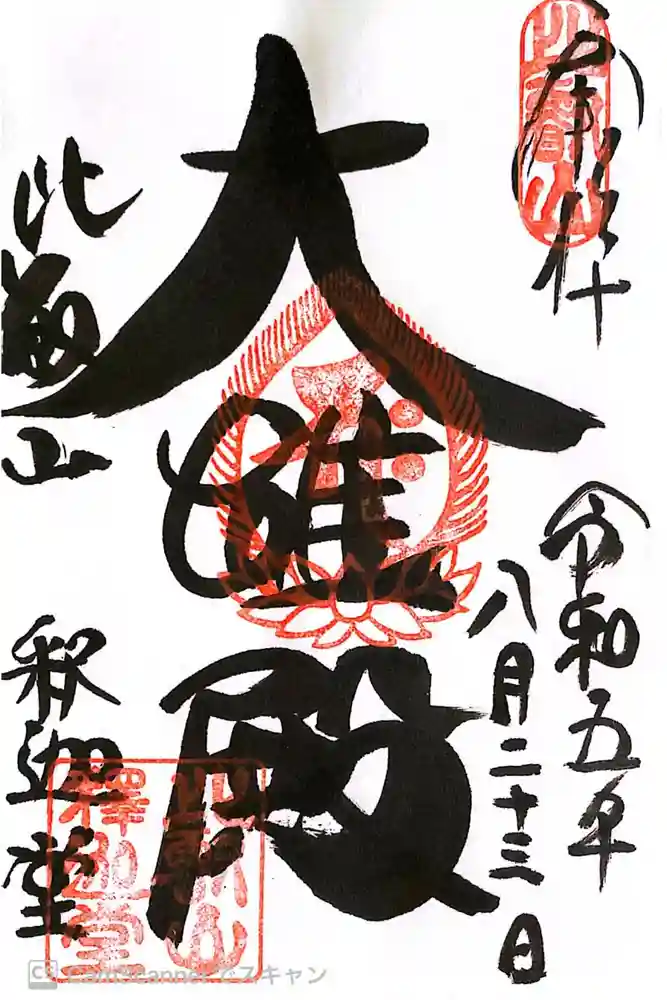 奉拝
令和五年
八月二十三日
大雄殿
比叡山
釈迦堂
比叡山
比叡山
釋迦堂
CS CamScannerでスキャン